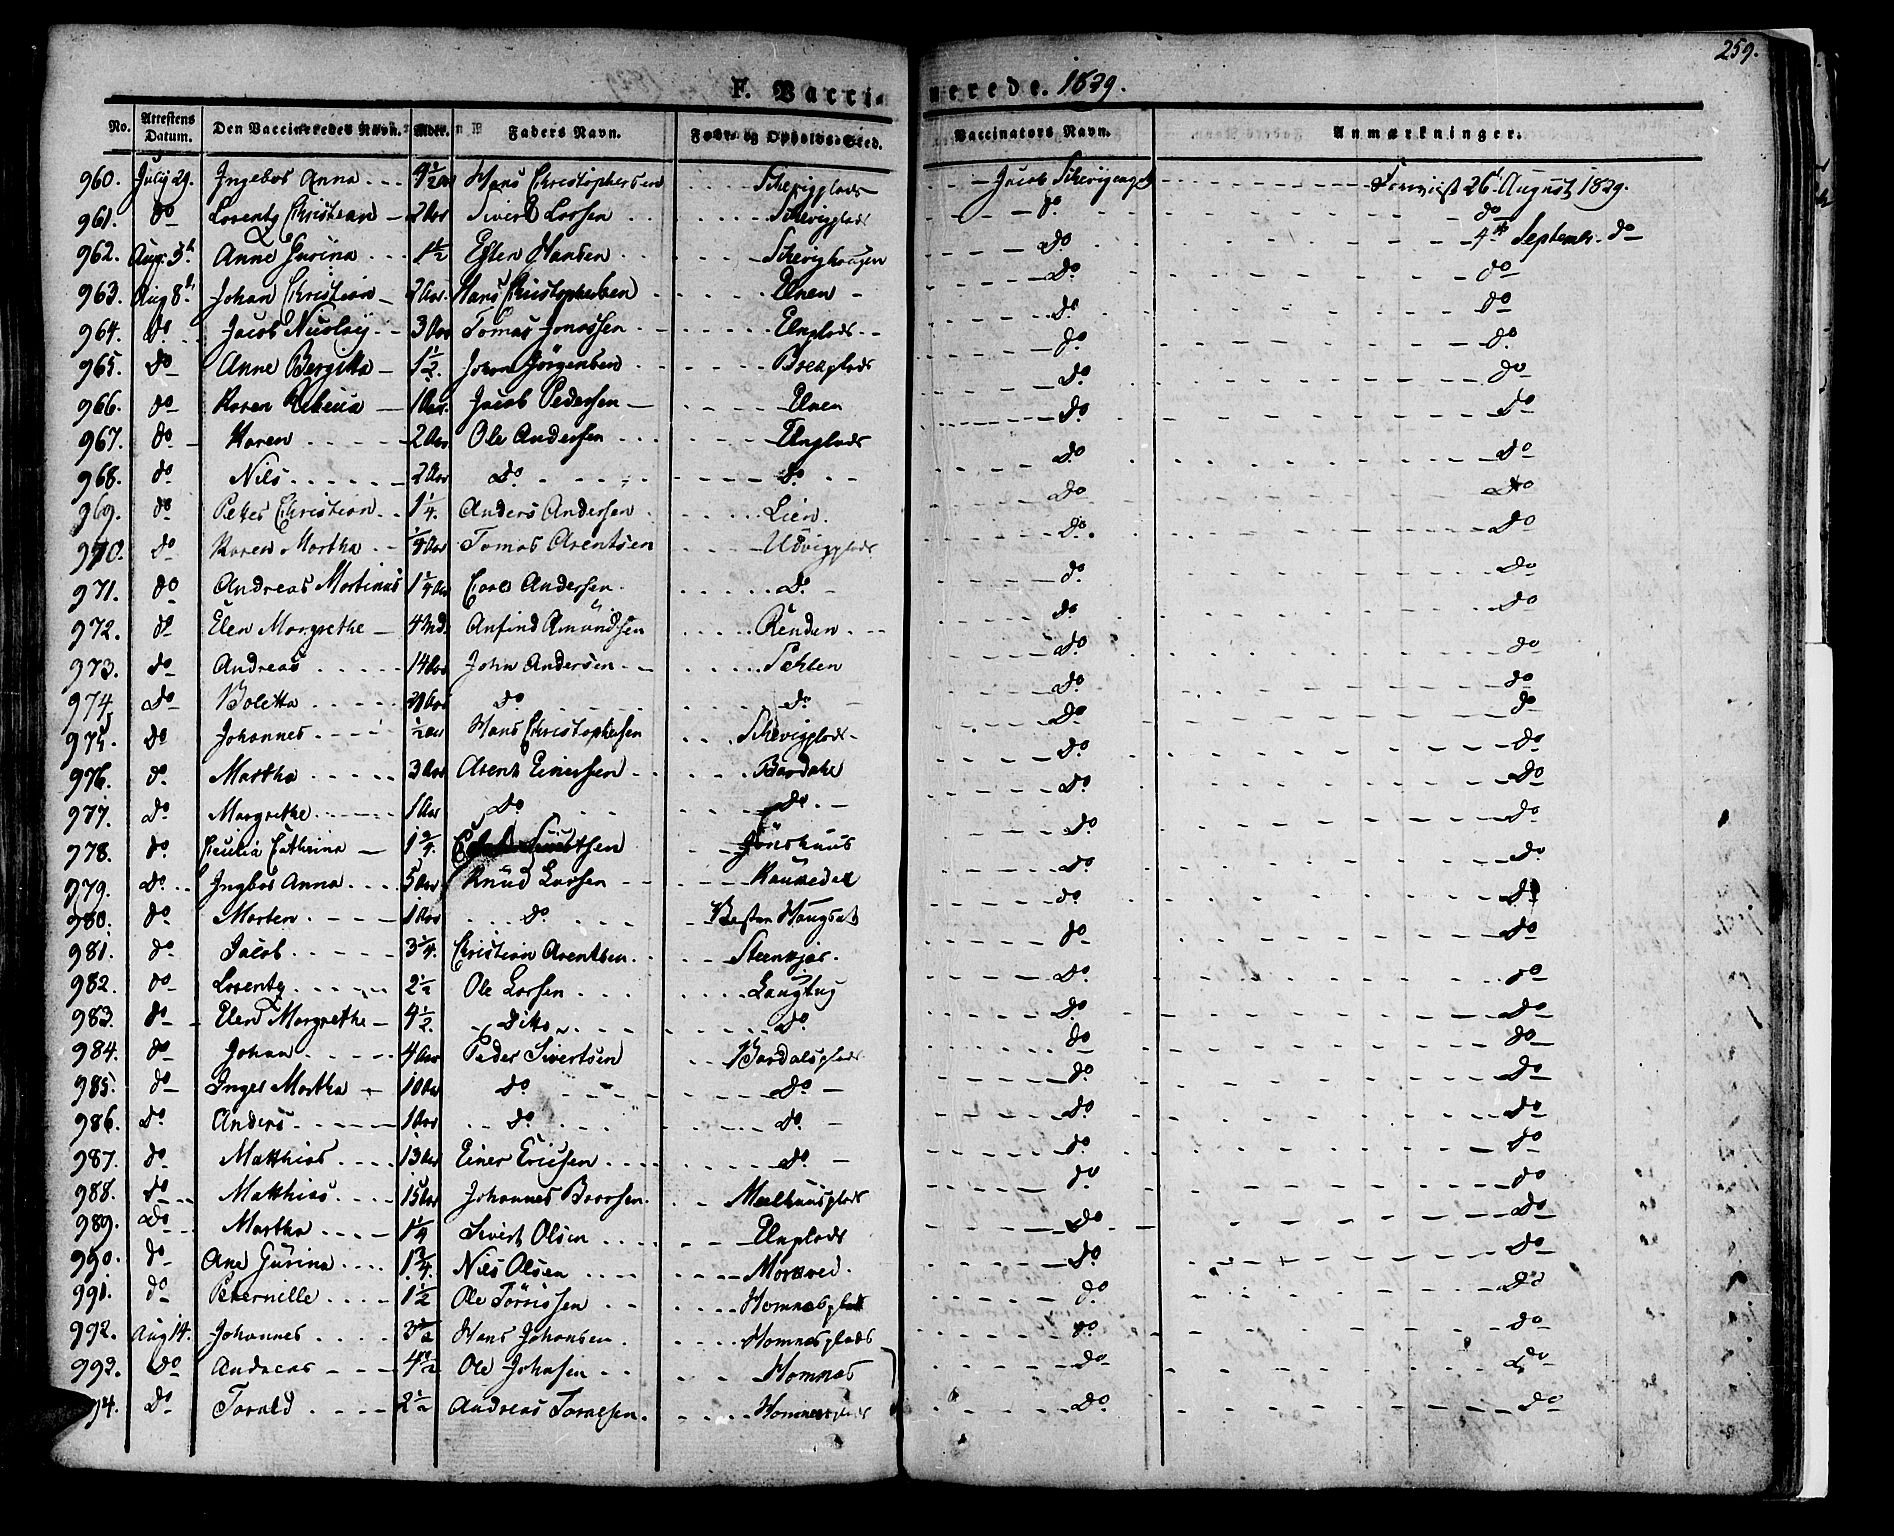 259.
F. Vaccinerede. 1829.
No. Attestens Datum. Den Vaccineredes Navn. Alder. Faders Navn. Føde- og Opholds-Sted. Vaccinators Navn. Anmærkninger.
960. July 29. Ingebor Anna Hans Christophersen Schevigplads Jacob 26 August 1829.
961. do Lorentz Christean 2 Aar Sivert Larsen Schevigplads do do
962. Aug: 3 Anne Gurina 1 1/2 Esten Hansen Schevighaugen do 4 Septembr. do
963. Aug 8 Johan Christian 2 Aar. Hans Christophersen Elnen do do
964. do. Jacob Nicolaij 3 Aar Tomas Jonassen Elnplads do do
965. do Anne Bergitta 1 1/2. Johan Jörgensen Breeplads do do
966. do Karen Rebecca 1 Aar. Jacob Pedersen Elnen do do
967. do Karen 2 Aar Ole Andersen Elnplads do do
968. do Nils 2 Aar Do Do do do
969. do Petter Christian 1 1/4. Anders Andersen Lien. do do
970. do Karen Martha Tomas Arentsen Udvigplads do. do
971. do Andreas Martinus Carl Andersen. do. do do
972. do Elen Margrethe 4 Md. Anfind Amundsen Renden do do
973. do Andreas 14 Aar John Andersen do do
974. Do Boletta do do do do
975. do Johannes 1/2 Aar Hans Christophersen Schevigplads do do
976. do. Martha 3 Aar Arent Einersen Bardahl do do
977. do Margrethe 1 Aar Do Do. do do
978. do. Cecilia Cathrina do do
979. Do Ingbor Anna 5 Aar Knud Larsen do do
980. do Morten 1 Aar do do do
981. do Jacob 3 1/4 Christian Arentsen Steenkjær. do do
982. do Lorentz 2 1/2 Ole Larsen do do
983. do Elen Margrethe 4 1/2. Ditto do. do do
984. do Johan 4 Aar Peder Sivertsen Bardalsplads do do
985. do Inger Martha 10 Aar do do do do
986. do. Anders 1 Aar do do. do do
987. do Matthias 13 Aar Einer Ericsen do. do do
988. do Matthias 15 Aar Johannes Maelhuusplads do do
989. do Martha 1 1/4 Sivert Olsen Elnplads do do
990. do Ane Gurina 1 3/4. Nils Olsen Morkved. do do
991. do Pernille 1 1/2 Ole Homnesplads do. do
992. Aug 14. Johannes Hans Johansen Homnesplads do do
993. do Andreas Ole Johnsen Homnes do do
94. do Torald 2 1/2 Andreas Homnesplads do. do